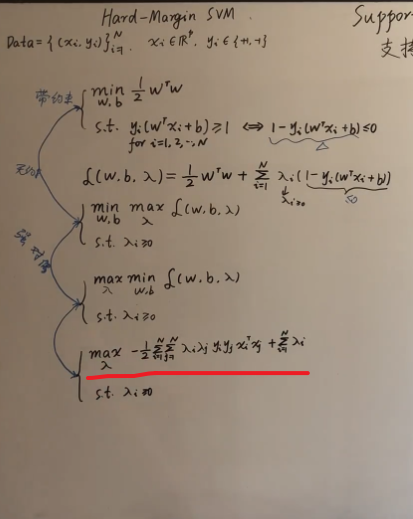 Hard-Margin SVM
Support
支持
Data = {(xi, yi)}ᵢ₌₁ᴺ, xi ∈ ℝᵖ, yi ∈ {+1, -1}
带约束
min w,b ½ wᵀw
s.t. yi(wᵀxi+b) ≥ 1 ⟺ 1 - yi(wᵀxi+b) ≤ 0
for i=1,2,…,N
△
无约束
L(w, b, λ) = ½ wᵀw + Σᵢ₌₁ᴺ λi(1 - yi(wᵀxi+b))
λi≥0
≤0
min w,b max λ L(w, b, λ)
s.t. λi ≥ 0
强对偶
max λ min w,b L(w, b, λ)
s.t. λi ≥ 0
max λ -½ Σᵢ₌₁ᴺ Σⱼ₌₁ᴺ λiλj yiyj xiᵀxj + Σᵢ₌₁ᴺ λi
s.t. λi ≥ 0